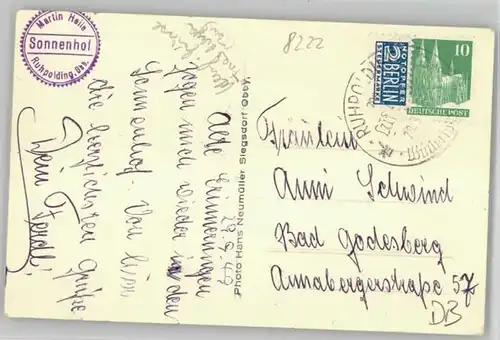 Martin Heile
Sonnenhof
Ruhpolding, Obb.
8222
29.4.49
Alte Erinnerungen
zogen mich wieder in den
Sonnenhof. Von hier
die herzlichsten Grüße
Dein Ferdl
Photo Hans Neumüller Siegsdorf Obby.
NOTOPFER
2 BERLIN
STEUERMARKE
10
DEUTSCHE POST
RUHPOLD
Fräulein
Anni Schwind
Bad Godesberg
Annabergerstraße 57
DB